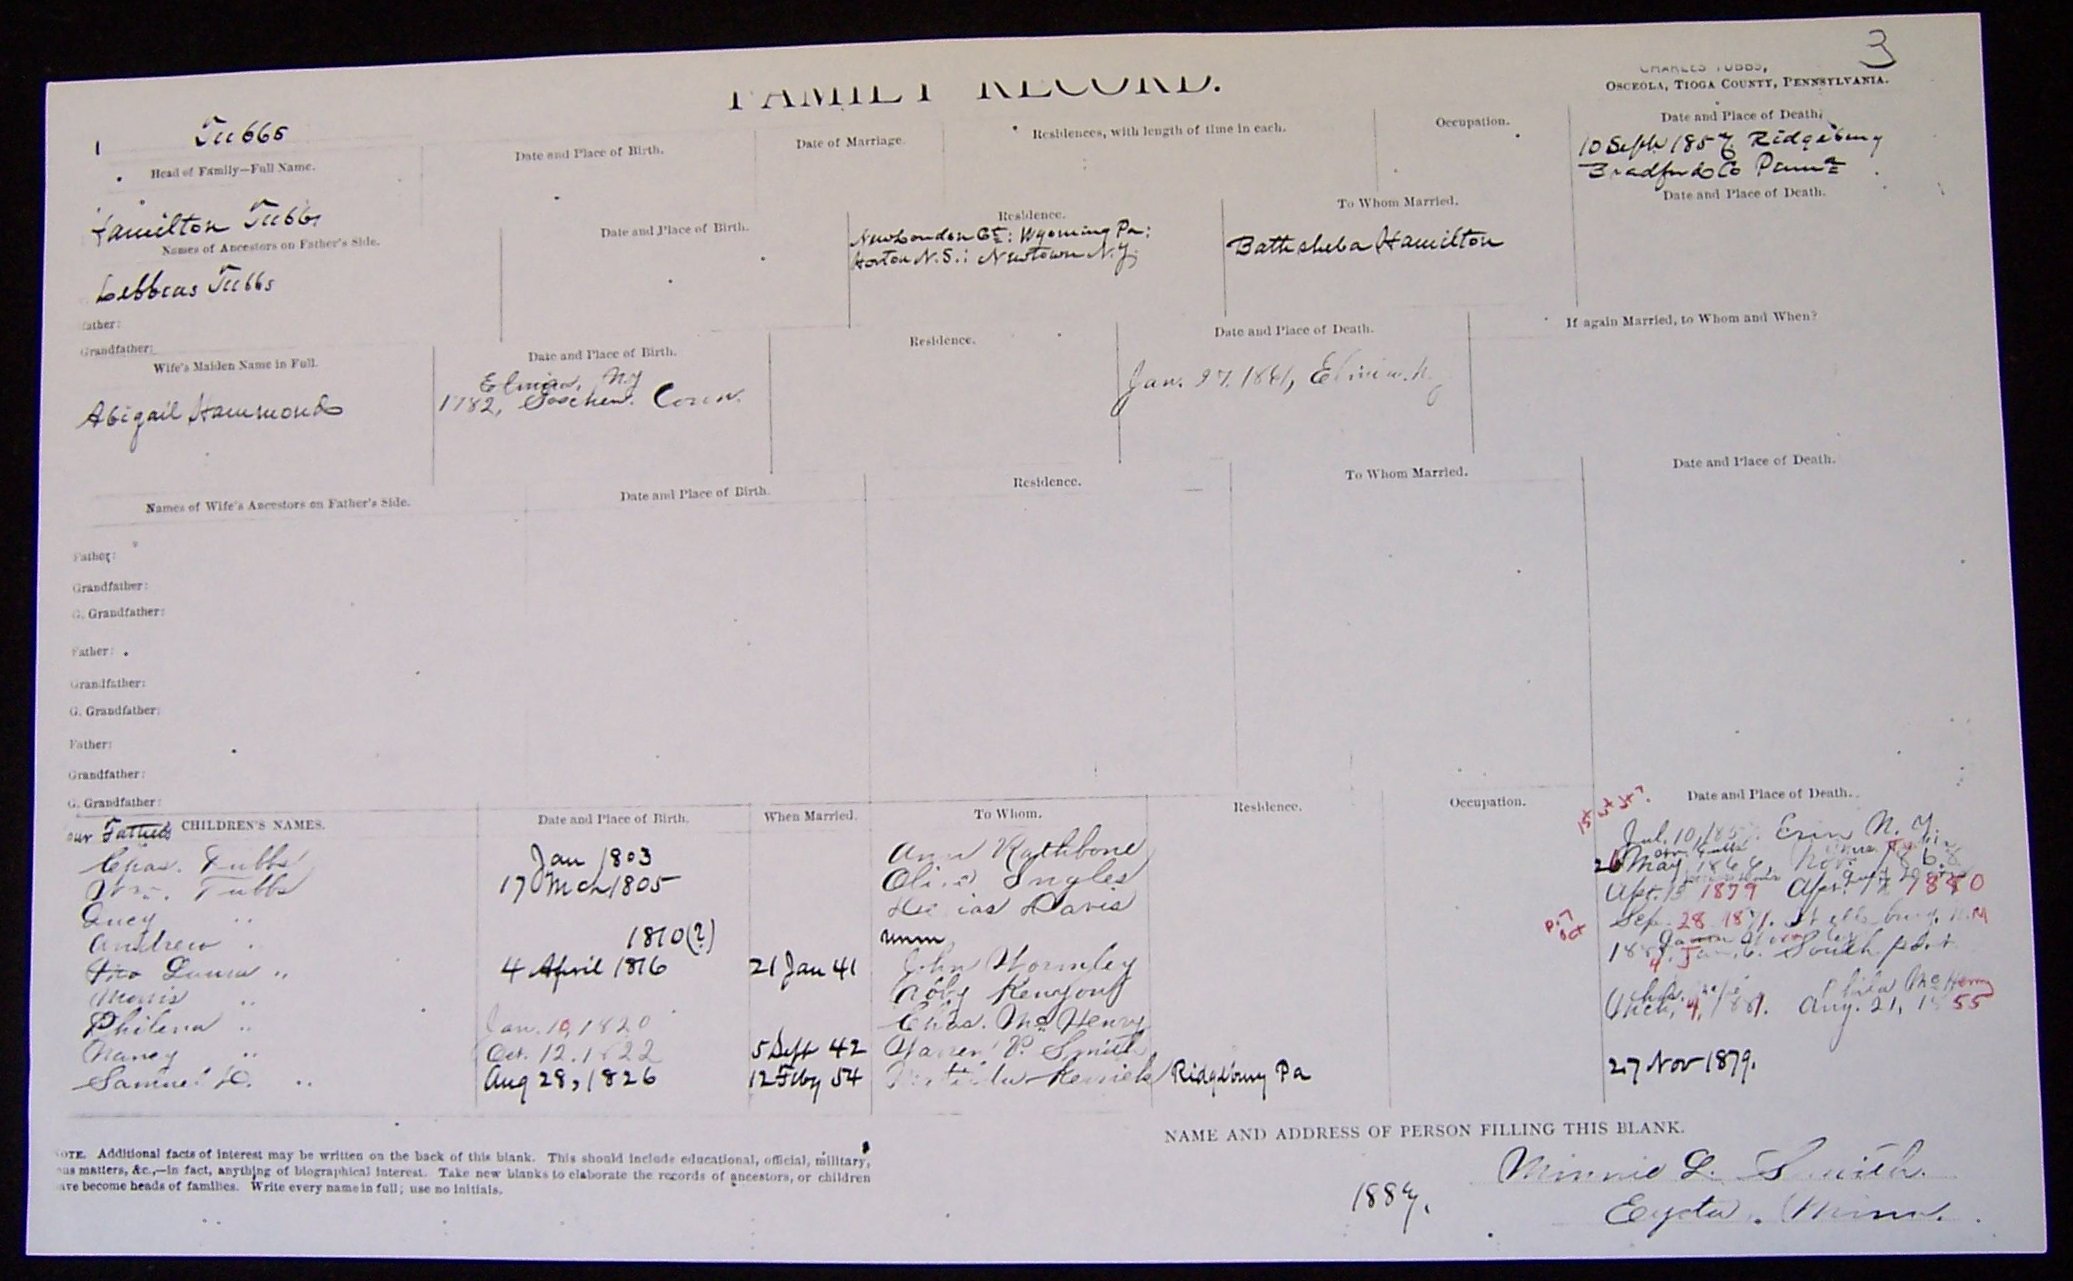 3
CHARLES TUBBS,
FAMILY RECORD.
OSCEOLA, TIOGA COUNTY, PENNSYLVANIA.
Tubbs
Head of Family—Full Name.
Date and Place of Birth.
Date of Marriage.
Residences, with length of time in each.
Occupation.
Date and Place of Death.
10 Sept. 1857 Ridgebury
Bradford Co Penna
Hamilton Tubbs
Names of Ancestors on Father's Side.
Date and Place of Birth.
Residence.
To Whom Married.
Date and Place of Death.
New London Ct: Wyoming Pa:
Horton N.S.: Newtown N.Y.
Bathsheba Hamilton
Lebbeus Tubbs
Father:
Grandfather:
Wife's Maiden Name in Full.
Date and Place of Birth.
Residence.
Date and Place of Death.
If again Married, to Whom and When?
Elmira, NY
Abigail Hammond
1782, Goschen. Conn.
Jan. 27, 1861, Elmira. N.Y.
Names of Wife's Ancestors on Father's Side.
Date and Place of Birth.
Residence.
To Whom Married.
Date and Place of Death.
Father:
Grandfather:
G. Grandfather:
Father:
Grandfather:
G. Grandfather:
Father:
Grandfather:
G. Grandfather:
our Fathers CHILDREN'S NAMES.
Date and Place of Birth.
When Married.
To Whom.
Residence.
Occupation.
Date and Place of Death.
Chas. Tubbs Jan 1803 Rathbone Jul. 10, Erin N.Y.
Wm. Tubbs 17 Mch 1805 Ingles 26 May 1866
Davis Apr. 15 1879 Apr. 1880
Andrew " 1810(?) unm Sep. 28 1871.
Laura " 4 April 1816 21 Jan 41 John Wormley South port
Morris " Kenyon
Philena " Jan. 10, 1820 Chas. McHenry Aug. 21, 1855
Nancy " Oct. 12. 1822 5 Sept 42 Warren P. Smith
Samuel " Aug 28, 1826 12 Feby 54 Ridgebury Pa 27 Nov 1879.
NAME AND ADDRESS OF PERSON FILLING THIS BLANK.
NOTE. Additional facts of interest may be written on the back of this blank. This should include educational, official, military,
ous matters, &c.,—in fact, anything of biographical interest. Take new blanks to elaborate the records of ancestors, or children
ave become heads of families. Write every name in full; use no initials.
Minnie L. Smith.
1887.
Eyota, Minn.